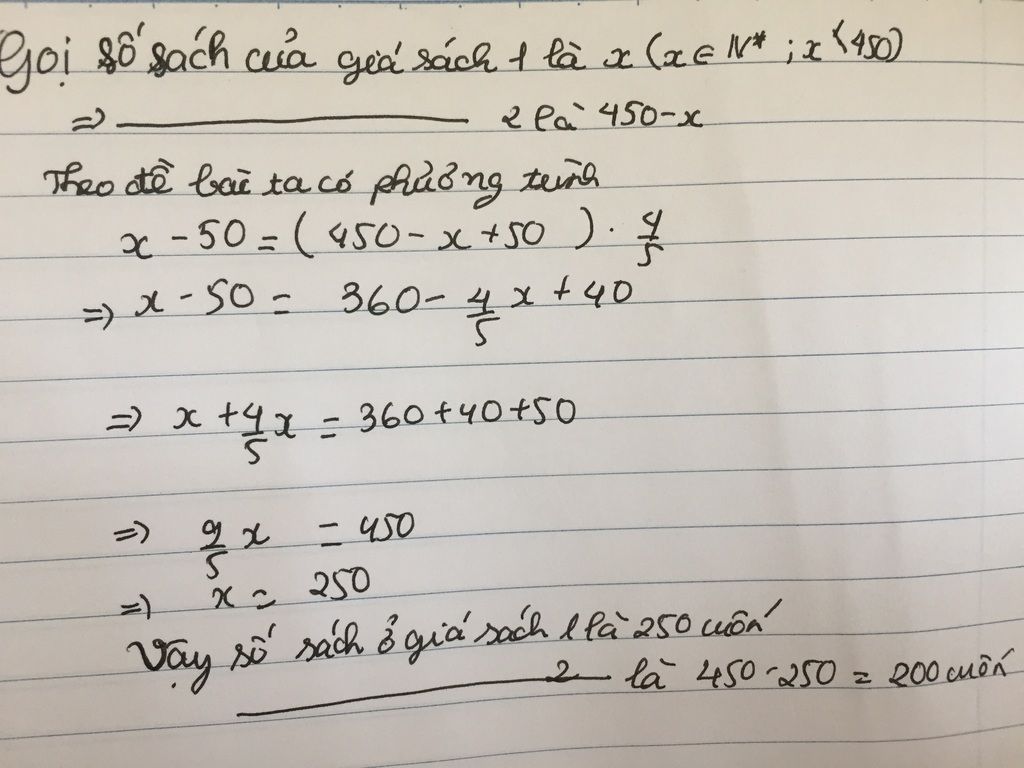 Gọi số sách của giá sách 1 là x (x ∈ N* ; x < 450)
=> ———— 2 là 450-x
Theo đề bài ta có phương trình
x - 50 = ( 450 - x + 50 ) . 4/5
=> x - 50 = 360 - 4/5 x + 40
=> x + 4/5 x = 360 + 40 + 50
=> 9/5 x = 450
=> x = 250
Vậy số sách ở giá sách 1 là 250 cuốn
———— 2 là 450 - 250 = 200 cuốn